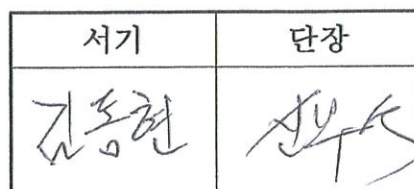 서기 단장
김동현